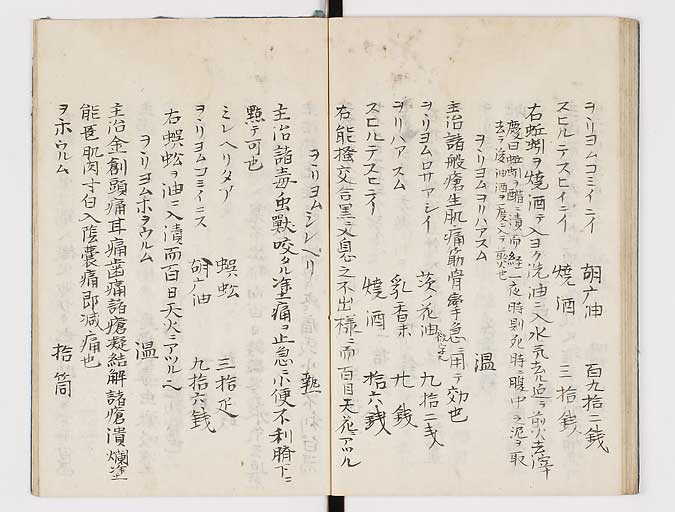 ヲヽリヨムコミイニイ 胡广油 百九拾二銭
スヒルテスヒイニイ 燒酒 三拾銭
右蚯蚓ヲ燒酒テ入ヨク洗油ニ入水氣去ル迫テ煎火去滓
慶曰蚯蚓ヲ醋ニ漬而経一夜時則死時ニ腹中之泥ヲ取
去テ後油酒ヲ度ニ入テ煎也
ヲヽリヨムヲリハアスム 温
主治諸般瘡生肌痛筋骨攣急ニ用テ効也
ヲヽリヨムロサアシイ 茨ノ花油 九拾二銭
ヲリハアスム 乳香末 九銭
スヒルテスヒテイ 燒酒 拾六銭
右能攪交合黒炙息之不出樣ニ而百目天花アツル
ヲヽリヨムシレヘリ 熱
主治諸毒虫獸咬タル塗痛ヲ止急ニ小便不利臍下ニ
點テ可也
ミレヘリタア 蜈蚣 三拾疋
ヲヽリヨムコミイニス 胡广油 九拾六銭
右蜈蚣ヲ油ニ入漬而百日天火ニアツルヘ
ヲヽリヨムホヲウルム 温
主治金創頭痛耳痛歯痛諸瘡凝結解諸瘡潰爛塗
能肌肉寸白入陰嚢痛即减痛也
ヲホウルム 拾箇